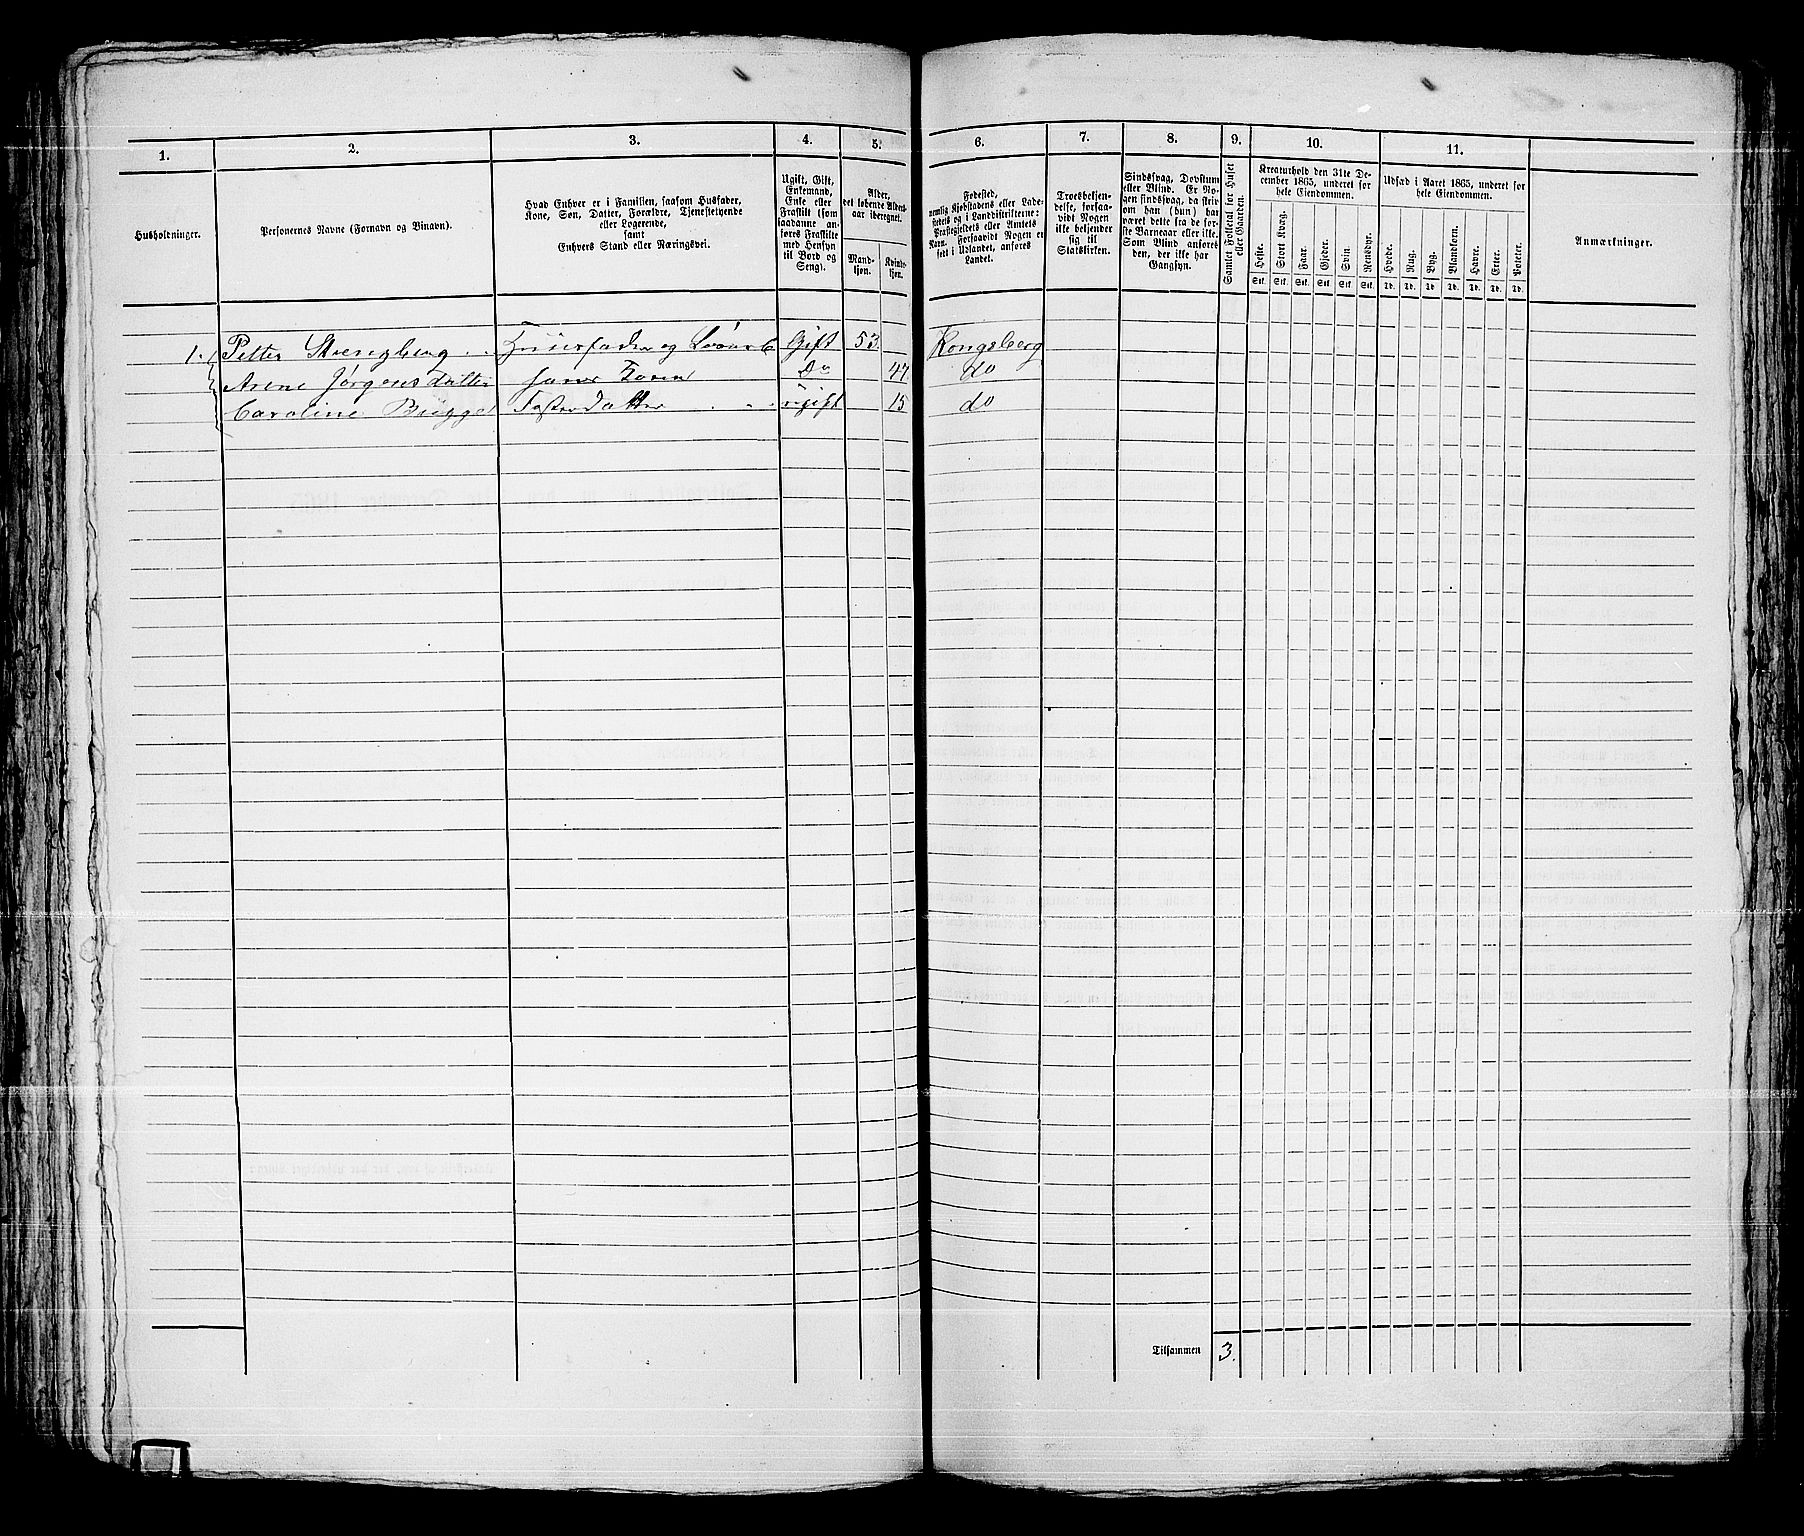 1. 2. 3. 4. 5. 6. 7. 8. 9. 10. 11.
Husholdninger.
Personernes Navne (Fornavn og Binavn).
Hvad Enhver er i Familien, saasom Husfader,
Kone, Søn, Datter, Forældre, Tjenestetyende
eller Logerende,
samt
Enhvers Stand eller Næringsvei.
Ugift, Gift,
Enkemand,
Enke eller
Fraskilt (som
saadanne an-
føres Fraskilte
med Hensyn
til Bord og
Seng).
Alder,
det løbende Alders-
aar iberegnet.
Mand-
kjøn.
Kvinde-
kjøn.
Fødested,
nemlig Kjøbstadens eller Lade-
stedets og i Landdistrikterne:
Præstegjeldets eller Amtets
Navn. Forsaavidt Nogen er
født i Udlandet, anføres
Landet.
Troesbekjen-
delse, forsaa-
vidt Nogen
ikke bekjender
sig til
Statskirken.
Sindssvag, Døvstum
eller Blind. Er No-
gen sindssvag, da skriv
om han (hun) har
været dette fra de før-
ste Barneaar eller ikke.
Som Blind anføres
den, der ikke har
Gangsyn.
Samlet Folketal for Huset
eller Gaarden.
Kreaturhold den 31te De-
cember 1865, underet for
hele Eiendommen.
Heste. Stort Kvæg. Faar. Gjeder. Svin. Rensdyr.
Stk. Stk. Stk. Stk. Stk. Stk.
Udsæd i Aaret 1865, underet for
hele Eiendommen.
Hvede. Rug. Byg. Blandkorn. Havre. Erter. Poteter.
Td. Td. Td. Td. Td. Td. Td.
Anmærkninger.
1. Petter Strengberg Huusfader og Gift 53. Kongsberg
Arene Jørgensdatter hans Kone Do 47. do
Caroline Brügge Datter ugift 15 do
Tilsammen 3.